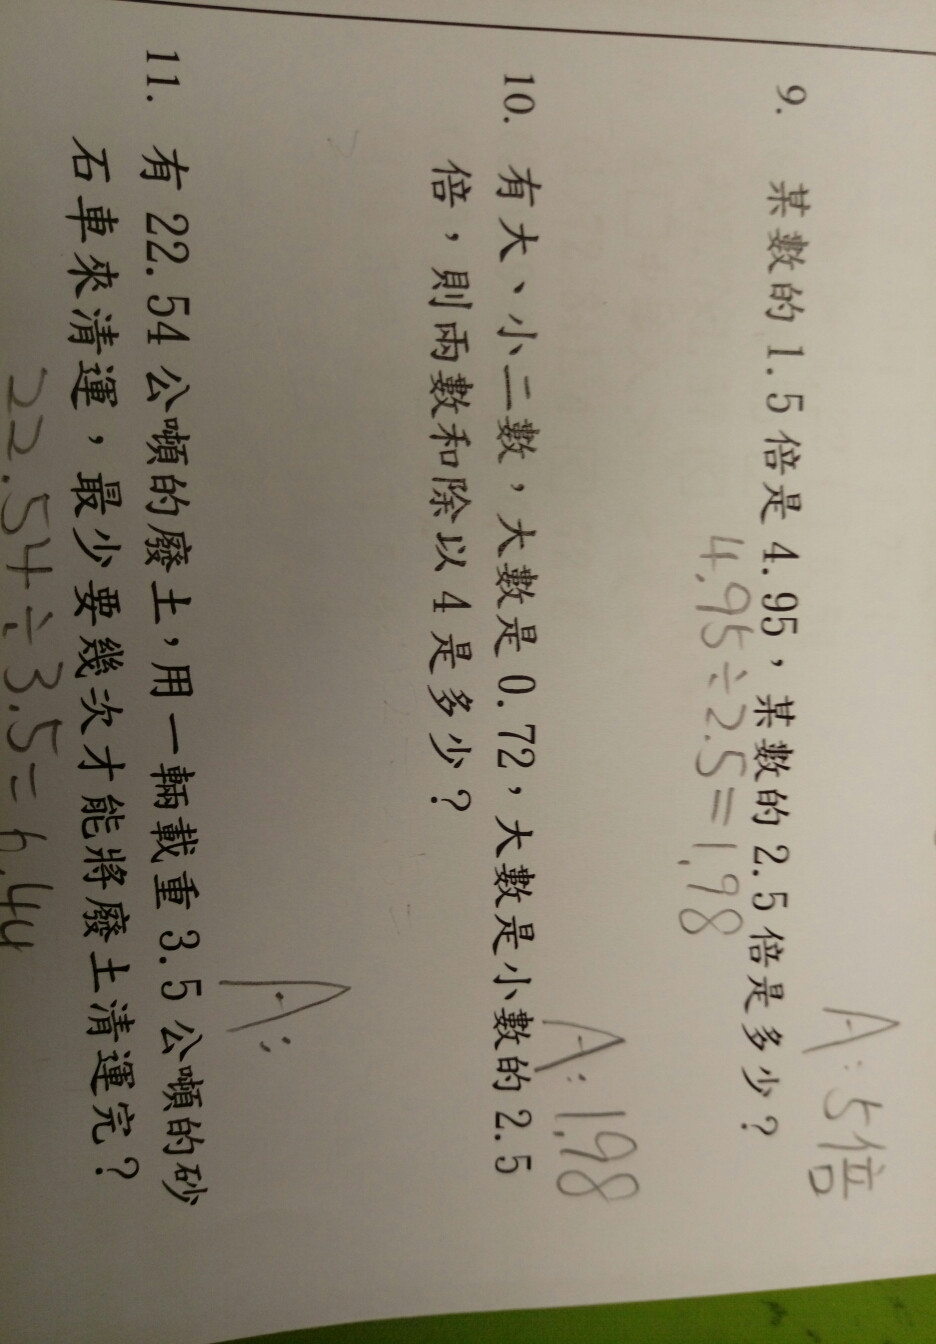 A:5倍
9. 某數的1.5倍是4.95，某數的2.5倍是多少？
4.95÷2.5=1.98
A:1.98
10. 有大、小二數，大數是0.72，大數是小數的2.5
倍，則兩數和除以4是多少？
A:
11. 有22.54公噸的廢土，用一輛載重3.5公噸的砂
石車來清運，最少要幾次才能將廢土清運完？
22.54÷3.5=6.44